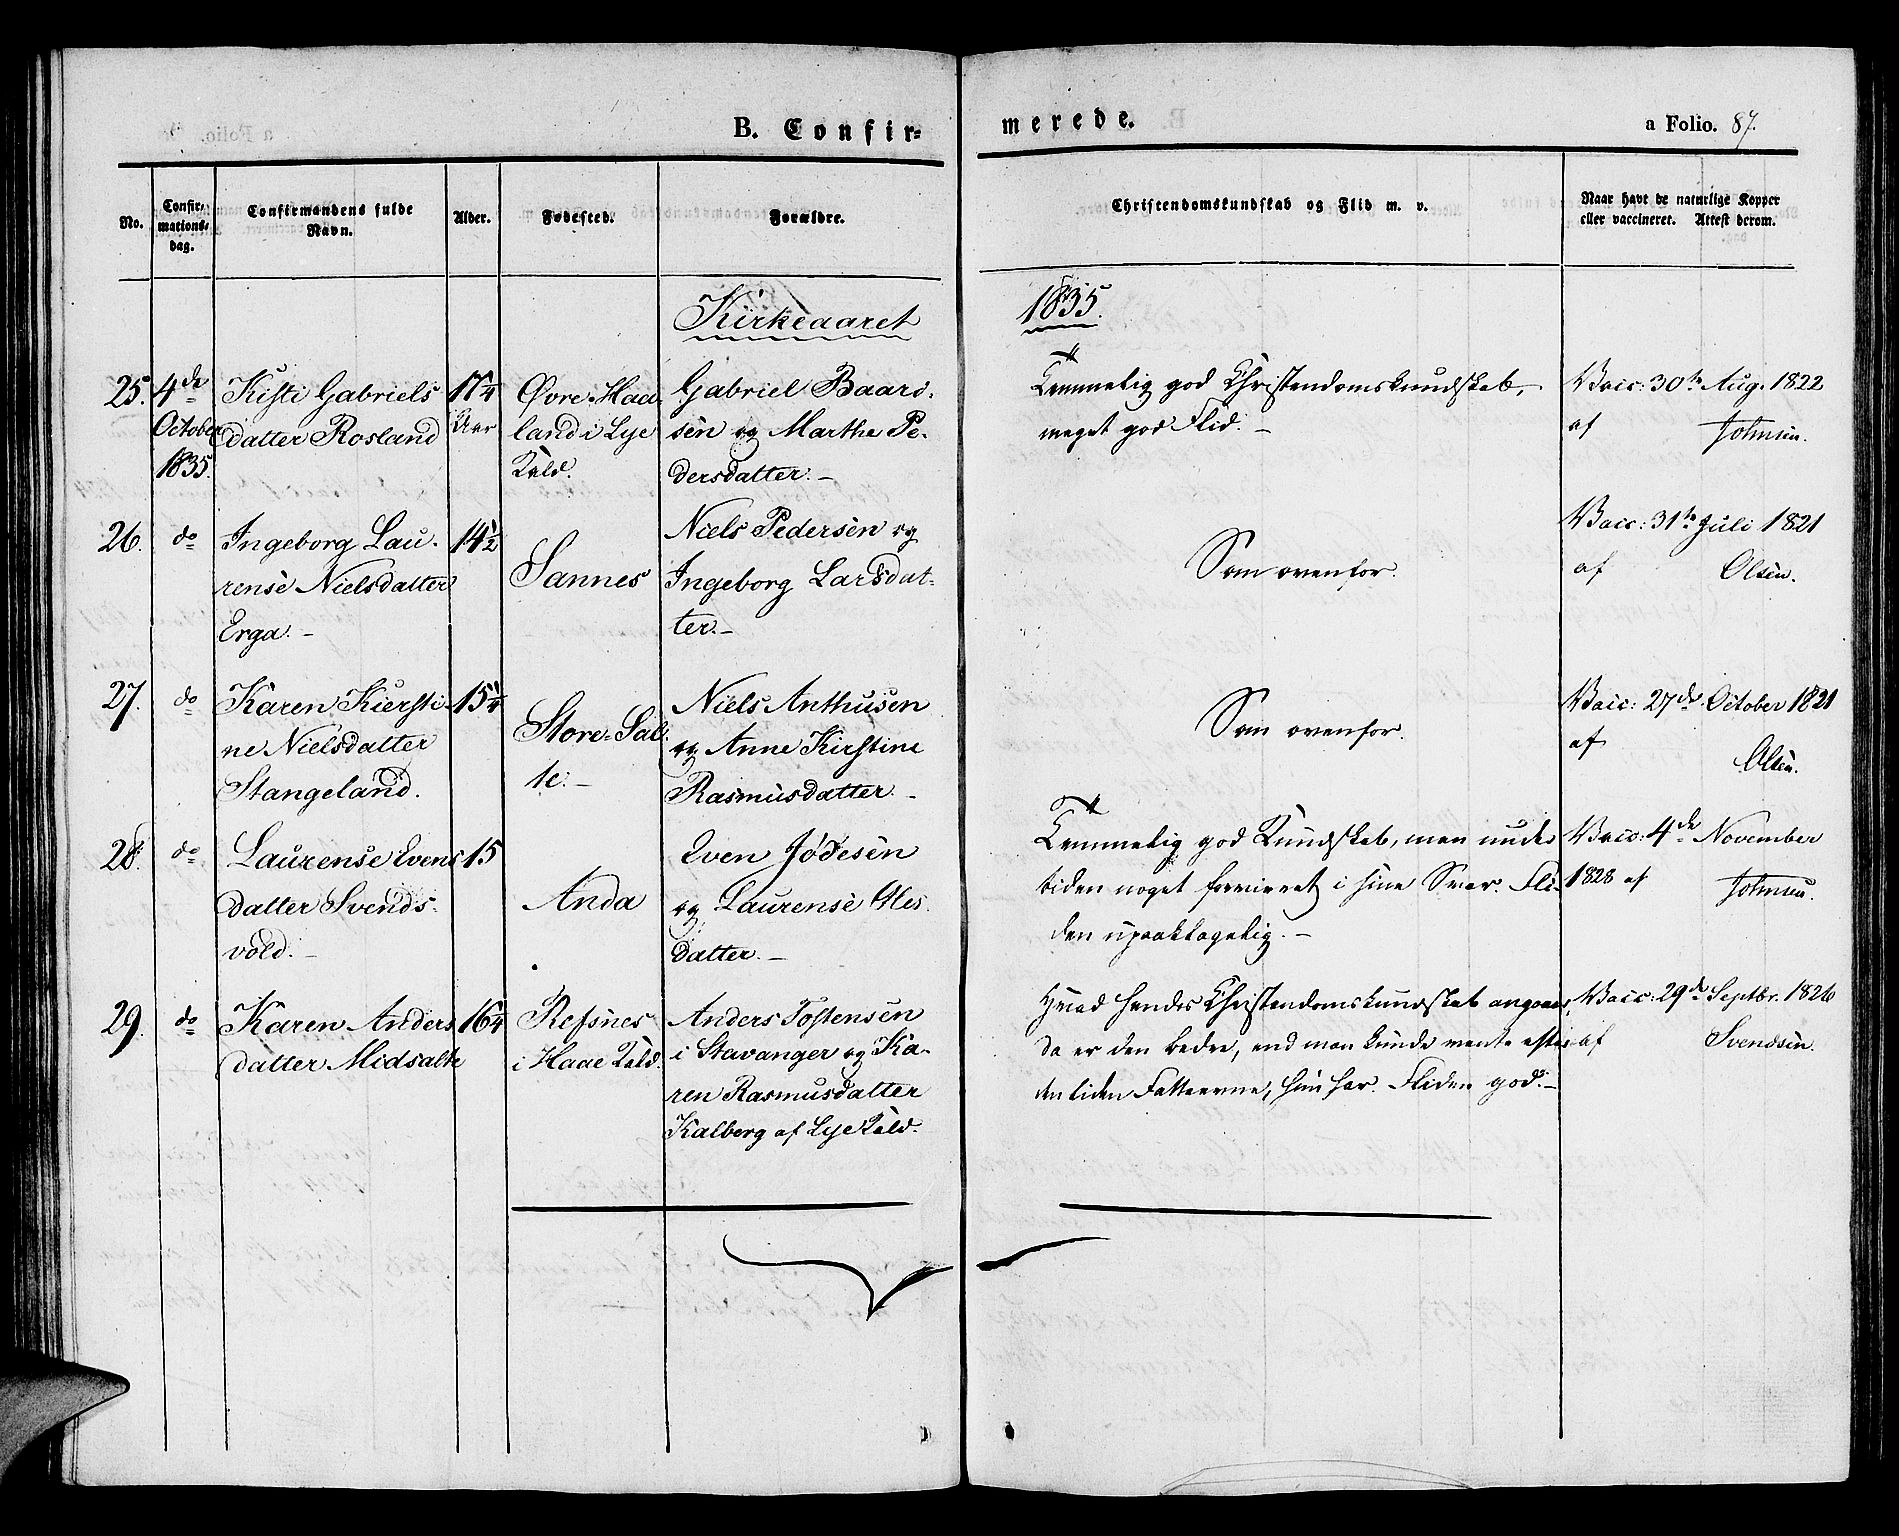 B. Confir=
merede.
a Folio. 87.
No.
Confir=
mations=
dag.
Confirmandens fulde
Navn.
Alder.
Fødested.
Forældre.
Christendomskundskab og Flid m. v.
Naar havt de naturlige Kopper
eller vaccineret. Attest derom.
Kirkeaaret
1835.
25. 4de
October
1835.
Kisti Gabriels
datter Rosland
17¼
Aar
Øvre-Haa-
land i Lye
Kald.
Gabriel Baard.
sen og Marthe Pe-
dersdatter. -
Temmelig god Christendomskundskab,
meget god Flid. -
Vacc: 30te Aug. 1822
af Johnsen.
26. do
Ingeborg Lau-
rense Nielsdatter
Erga. -
14½
Sannes
Niels Pedersen og
Ingeborg Larsdat-
ter. -
Som ovenfor.
Vacc: 31te Juli 1821
af Olsen.
27. do
Karen Kiersti-
ne Nielsdatter
Stangeland.
15¼
Store-Sal-
te. -
Niels Anthusen
og Anne Kirstine
Rasmusdatter. -
Som ovenfor.
Vacc: 27de October 1821
af Olsen.
28. do
Laurense Evens
datter Svends-
vold. -
15
Anda
Even Jødesen
og Laurense Oles
datter. -
Temmelig god Kundskab, men under
tiden noget forvirret i sine Svar. Fli-
den upaaklagelig. -
Vacc: 4de November
1828 af Johnsen.
29. do
Karen Anders
datter Midsalte
16¼
Refsnes
i Haae Kald.
Anders Tostensen
i Stavanger og Ka-
ren Rasmusdatter
Kalberg af Lye Kald.
Hvad hendes Christendomskundskab angaaer,
da er den bedre, end man kunde vente efter
den liden Fatteevne, hun har. Fliden god. -
Vacc: 29de Septbr. 1826
af Svendsen.